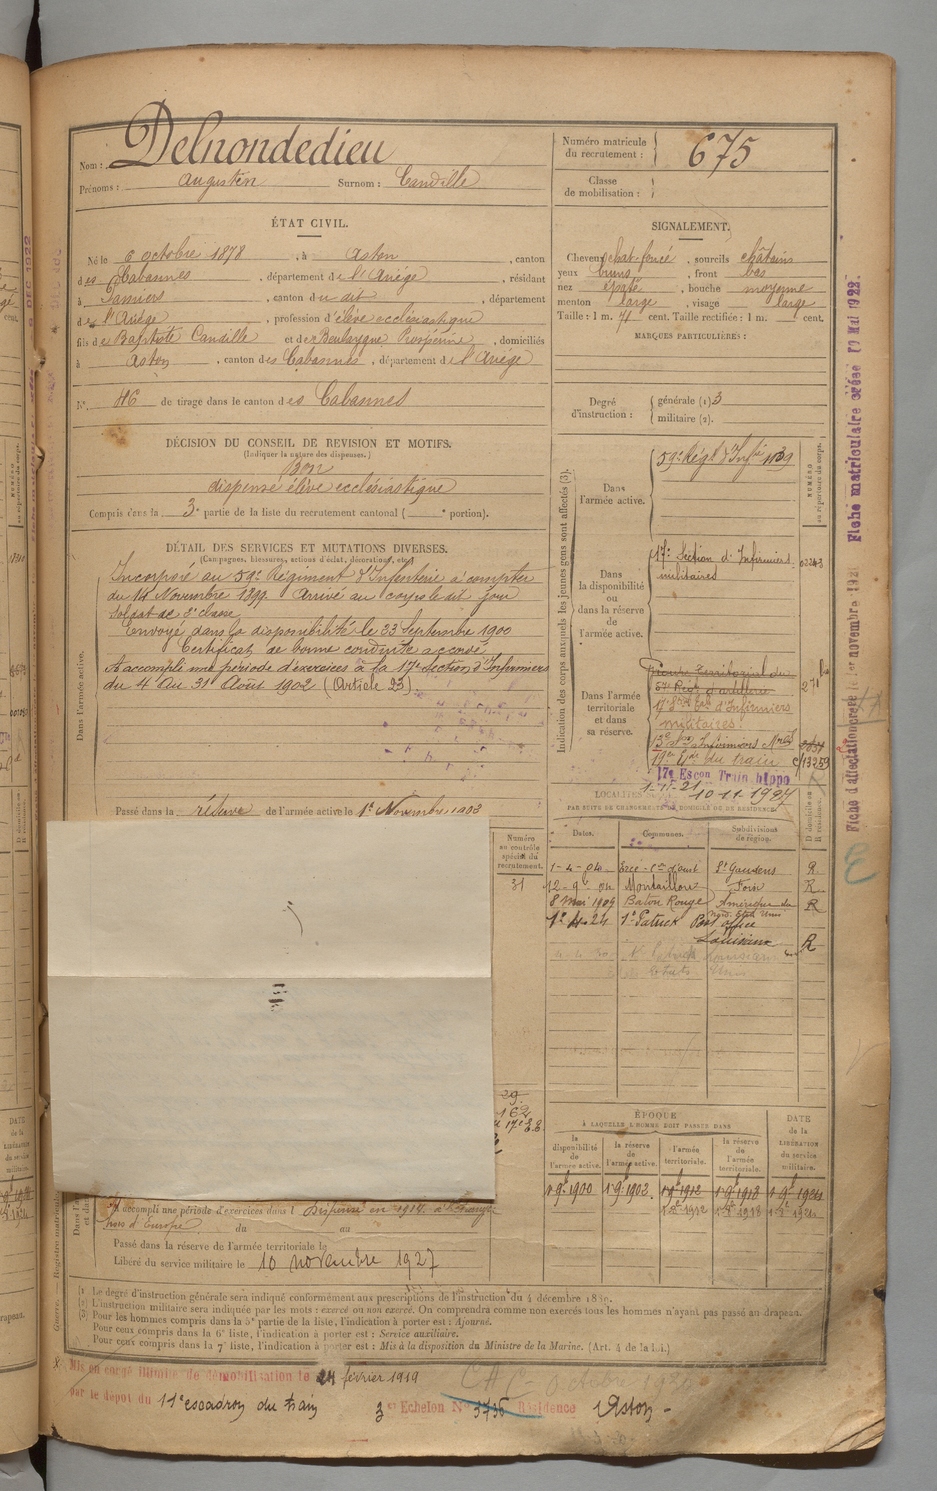 Nom : Delnondedieu
Prénoms : Augustin Surnom : Candille
Numéro matricule du recrutement : 675
Classe de mobilisation :
ÉTAT CIVIL.
Né le 6 octobre 1878, à Aston, canton
des Cabannes, département de l'Ariège, résidant
à Pamiers, canton du dit, département
de l'Ariège, profession d'élève ecclésiastique
fils de Baptiste Candille et de Boulargue, domiciliés
à Aston, canton des Cabannes, département de l'Ariège
N° 46 de tirage dans le canton des Cabannes
SIGNALEMENT.
Cheveux chat-foncé, sourcils châtains
yeux bruns, front bas
nez épaté, bouche moyenne
menton large, visage large
Taille : 1 m. 71 cent. Taille rectifiée : 1 m. cent.
MARQUES PARTICULIÈRES :
Degré d'instruction : générale (1) 3
militaire (2).
DÉCISION DU CONSEIL DE REVISION ET MOTIFS.
(Indiquer la nature des dispenses.)
Bon
dispensé élève ecclésiastique
Compris dans la 3e partie de la liste du recrutement cantonal ( e portion).
DÉTAIL DES SERVICES ET MUTATIONS DIVERSES.
(Campagnes, blessures, actions d'éclat, décorations, etc.)
Dans l'armée active.
Incorporé au 59e Régiment d'Infanterie à compter
du 14 Novembre 1899. Arrivé au corps le dit jour
soldat de 2e classe
Envoyé dans la disponibilité le 23 Septembre 1900
Certificat de bonne conduite accordé
A accompli une période d'exercices à la 17e Section d'Infirmiers
du 4 au 31 Août 1902 (Article 23)
Passé dans la réserve de l'armée active le 1er Novembre 1903
Indication des corps auxquels les jeunes gens sont affectés (3).
NUMÉRO au répertoire du corps.
Dans l'armée active.
59e Régt d'Infie
Dans la disponibilité ou dans la réserve de l'armée active.
17e Section d'Infirmiers
militaires
Dans l'armée territoriale et dans sa réserve.
d'Infirmiers
militaires
du train
17e Escon Train hippo
1-1-21
10-11-1927
LOCALITÉS
PAR SUITE DE CHANGEMENTS DE DOMICILE OU DE RÉSIDENCE.
Dates. Communes. Subdivisions de région. D domicile ou R résidence.
1-4-04 Ercé St Gaudens R
12-9-04 Montaillou Foix R
8 mai 1909 Baton Rouge Amérique du R
Nord Etats Unis
1er 4-24 St Patrick Post office
Louisiane R
Numéro au contrôle spécial du recrutement.
31
29.
162
ÉPOQUE
À LAQUELLE L'HOMME DOIT PASSER DANS
la disponibilité de l'armée active. la réserve de l'armée active. l'armée territoriale. la réserve de l'armée territoriale. DATE de la LIBÉRATION du service militaire.
1 9e 1900 1 9e 1903. 1 9e 1912 1 9e 1918 1 9e 1924
A accompli une période d'exercices dans l Dispensé en 1914. à l'Etranger
hors d'Europe du au
Passé dans la réserve de l'armée territoriale le
Libéré du service militaire le 10 novembre 1927
(1) Le degré d'instruction générale sera indiqué conformément aux prescriptions de l'instruction du 4 décembre 1889.
(2) L'instruction militaire sera indiquée par les mots : exercé ou non exercé. On comprendra comme non exercés tous les hommes n'ayant pas passé au drapeau.
(3) Pour les hommes compris dans la 5e partie de la liste, l'indication à porter est : Ajourné.
Pour ceux compris dans la 6e liste, l'indication à porter est : Service auxiliaire.
Pour ceux compris dans la 7e liste, l'indication à porter est : Mis à la disposition du Ministre de la Marine. (Art. 4 de la loi.)
Mis en congé illimité de démobilisation le 24 février 1919
par le dépôt du 11e escadron du train 3e Echelon N° 3736 Résidence Aston
Fiche matriculaire créée 19 Mai 1922
Fiche d'affectation créée le 1er novembre